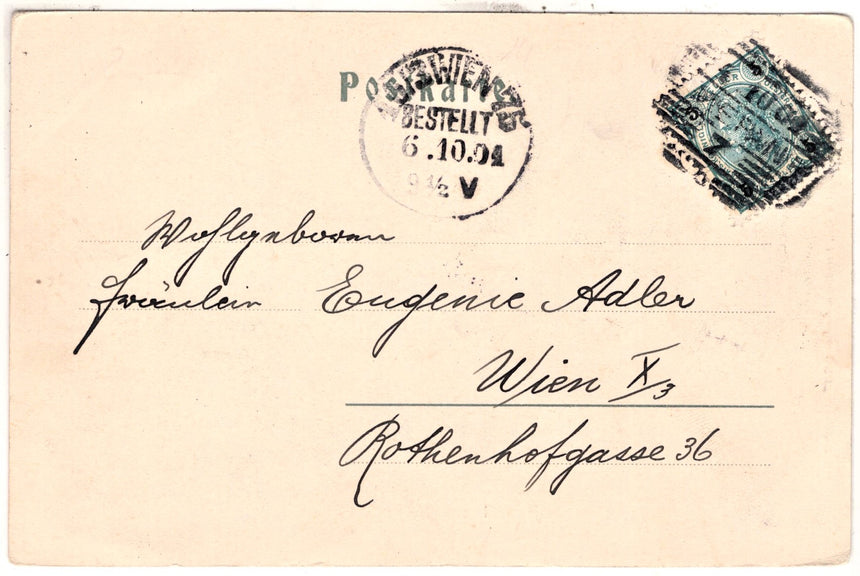 Postkarte
WIEN 75
BESTELLT
6.10.01
9 ½ V
Wohlgeboren
Fräulein Eugenie Adler
Wien X/3
Rothenhofgasse 36